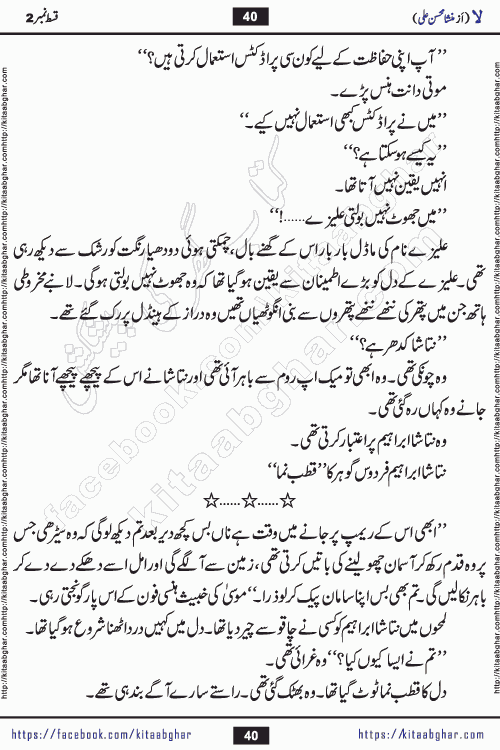 قسط نمبر 2
40
لا (از منشا محسن علی)
’’آپ اپنی حفاظت کے لیے کون سی پراڈکٹس استعمال کرتی ہیں؟‘‘
موتی دانت ہنس پڑے۔
’’میں نے پراڈکٹس کبھی استعمال نہیں کیے۔‘‘
’’یہ کیسے ہو سکتا ہے؟‘‘
انہیں یقین نہیں آتا تھا۔
’’میں جھوٹ نہیں بولتی علیزے......!‘‘
علیزے نام کی ماڈل بار بار اس کے گھنے بال، چمکتی ہوئی دودھیا رنگت کو رشک سے دیکھ رہی
تھی۔ علیزے کے دل کو بڑے اطمینان سے یقین ہو گیا تھا کہ وہ جھوٹ نہیں بولتی ہوگی۔ لانبے مخروطی
ہاتھ جن میں پتھر کی ننھے ننھے پتھروں سے بنی انگوٹھیاں تھیں وہ دراز کے ہینڈل پر رک گئے تھے۔
’’نتاشا کدھر ہے؟‘‘
وہ چونکی تھی۔ وہ ابھی تو میک اپ روم سے باہر آئی تھی اور نتاشا نے اس کے پیچھے پیچھے آنا تھا مگر
جانے وہ کہاں رہ گئی تھی۔
وہ نتاشا ابراہیم پر اعتبار کرتی تھی۔
نتاشا ابراہیم فردوس گوہر کا ’’قطب نما‘‘
☆......☆......☆
’’ابھی اس کے ریمپ پر جانے میں وقت ہے ناں بس کچھ دیر بعد تم دیکھ لو گی کہ وہ سیڑھی جس
پر وہ قدم رکھ کر آسمان چھو لینے کی باتیں کرتی تھی، زمین سے آ لگے گی اور امل اسے دھکے دے دے کر
باہر نکالیں گی۔ تم بھی بس اپنا سامان پیک کر لو ذرا۔‘‘ موسیٰ کی خبیث ہنسی فون کے اس پار گونجتی رہی۔
لمحوں میں نتاشا ابراہیم کو کسی نے چاقو سے چیر دیا تھا۔ دل میں کہیں درد اٹھنا شروع ہو گیا تھا۔
’’تم نے ایسا کیوں کیا؟‘‘ وہ غرائی تھی۔
دل کا قطب نما ٹوٹ گیا تھا۔ وہ بھٹک گئی تھی۔ راستے سارے آگے بند ہی تھے۔
https://facebook.com/kitaabghar
40
https://kitaabghar.com
http://kitaabghar.com
کتاب گھر کی پیشکش
facebook.com/kitaabghar
kitaabghar.com